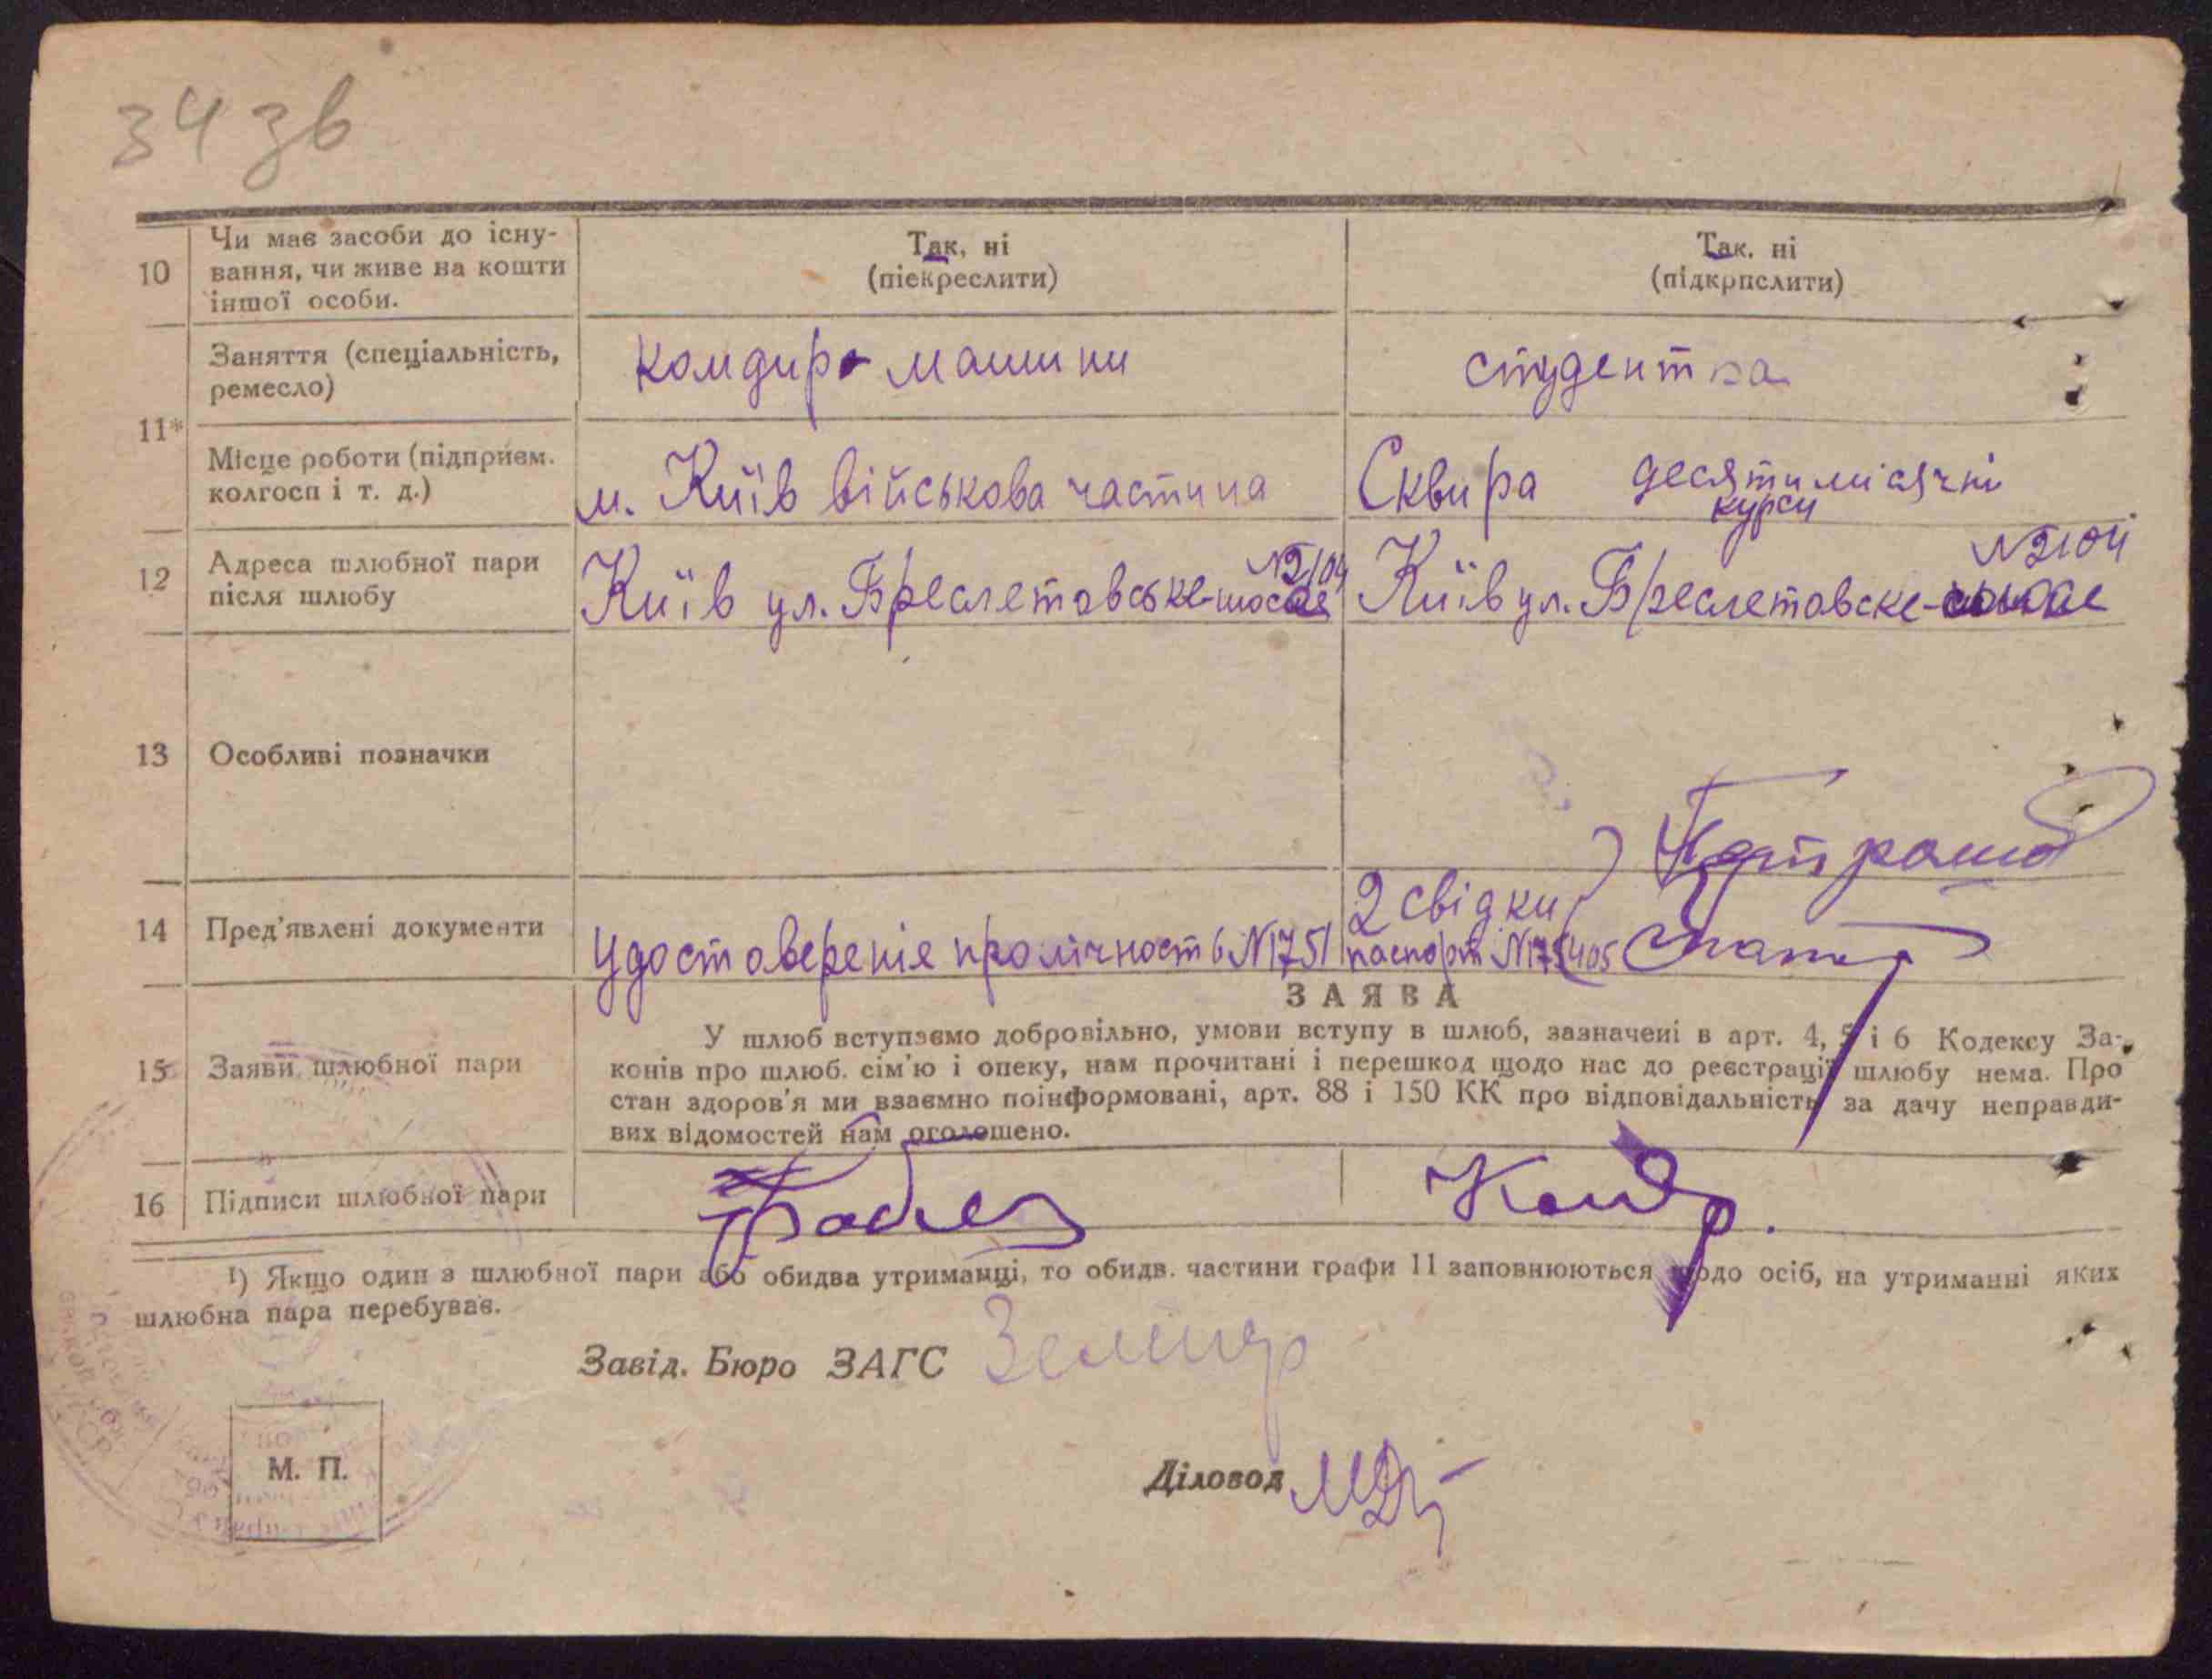 34 зв
10 Чи має засоби до існу-
вання, чи живе на кошти
іншої особи.
Так, ні
(піекреслити)
Так. ні
(підкрпслити)
11*
Заняття (спеціальність,
ремесло)
комдир машини
студентка
Місце роботи (підприєм.
колгосп і т. д.)
м. Київ військова частина
Сквира десятимісячні
курси
12 Адреса шлюбної пари
після шлюбу
Київ ул. Бреслетовське-шосае №2/04
Київ ул. Бреслетовске- №2104
13 Особливі позначки
14 Пред'явлені документи
Удостоверение про лічность N1751
2 свідки
паспорт N175405
15 Заяви шлюбної пари
ЗАЯВА
У шлюб вступаємо добровільно, умови вступу в шлюб, зазначені в арт. 4, 5 і 6 Кодексу За-
конів про шлюб. сім'ю і опеку, нам прочитані і перешкод щодо нас до реєстрації шлюбу нема. Про
стан здоров'я ми взаємно поінформовані, арт. 88 і 150 КК про відповідальність за дачу неправди-
вих відомостей нам оголошено.
16 Підписи шлюбної пари
¹) Якщо один з шлюбної пари або обидва утриманці, то обидв. частини графи 11 заповнюються щодо осіб, на утриманні яких
шлюбна пара перебуває.
Завід. Бюро ЗАГС
Діловод
М. П.